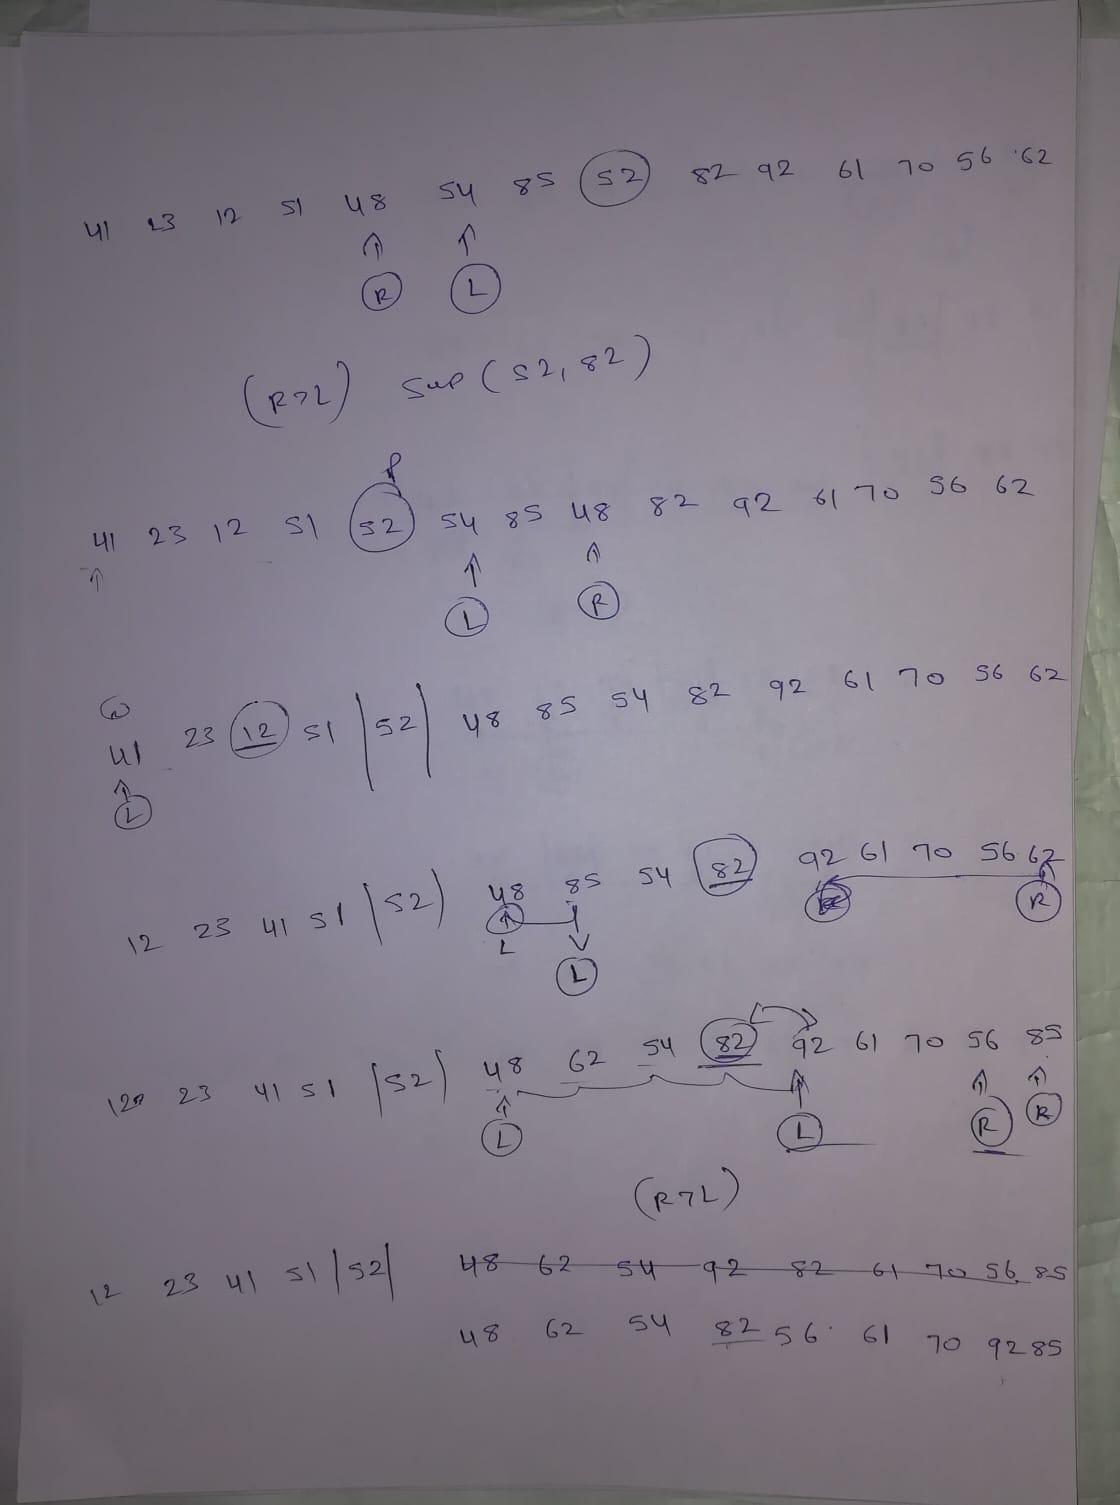 41 23 12 51 48 54 85 52 82 92 61 70 56 62
R L
(R>L) sup (52, 82)
P
41 23 12 51 52 54 85 48 82 92 61 70 56 62
L R
41 23 12 51 |52| 48 85 54 82 92 61 70 56 62
L
12 23 41 51 |52| 48 85 54 82 92 61 70 56 62
L R
L
12 23 41 51 |52| 48 62 54 82 92 61 70 56 85
L L R R
(R>L)
12 23 41 51 |52| 48 62 54 92 82 61 70 56 85
48 62 54 82 56 61 70 92 85